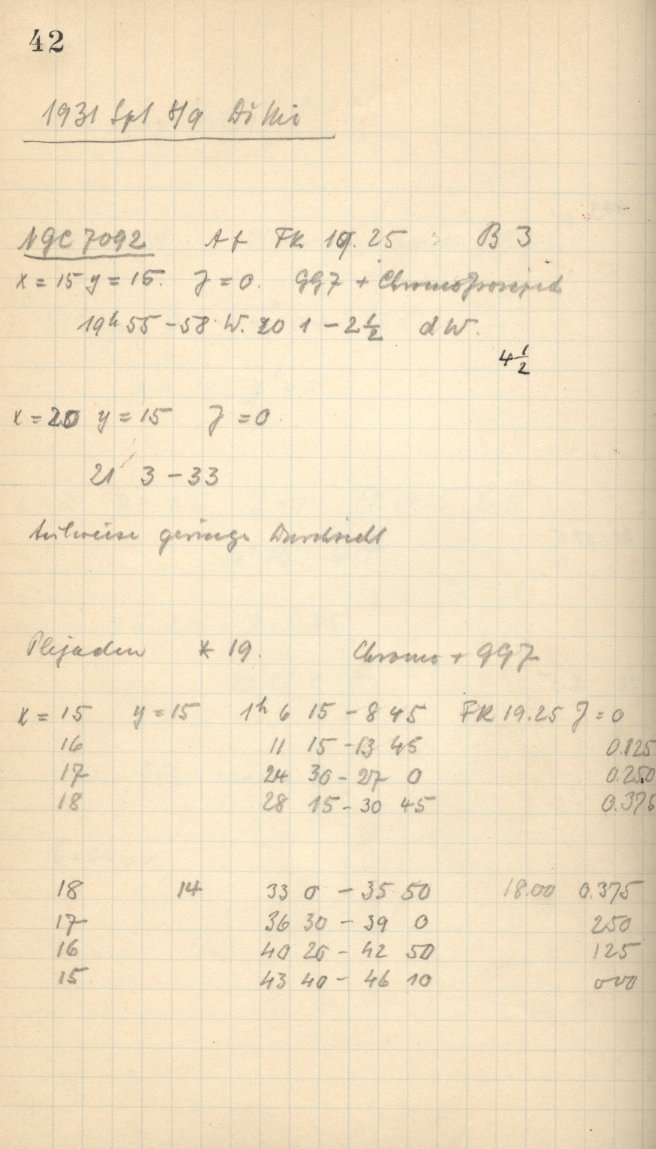 42
1931 Spt 8/9
NGC 7092 Af FK 19.25 B 3
x = 15 y = 15. J = 0. GG7 + Chromo
19h 55 - 58 W. 20 1 - 2 1/2 d W.
4 1/2
x = 20 y = 15 J = 0
21 3 - 33
teilweise geringe Durchsicht
Plejaden * 19. Chromo + GG7
x = 15 y = 15 1h 6 15 - 8 45 FK 19.25 J = 0
16 11 15 - 13 45 0.125
17 24 30 - 27 0 0.250
18 28 15 - 30 45 0.375
18 14 33 0 - 35 50 18.00 0.375
17 36 30 - 39 0 250
16 40 20 - 42 50 125
15 43 40 - 46 10 000